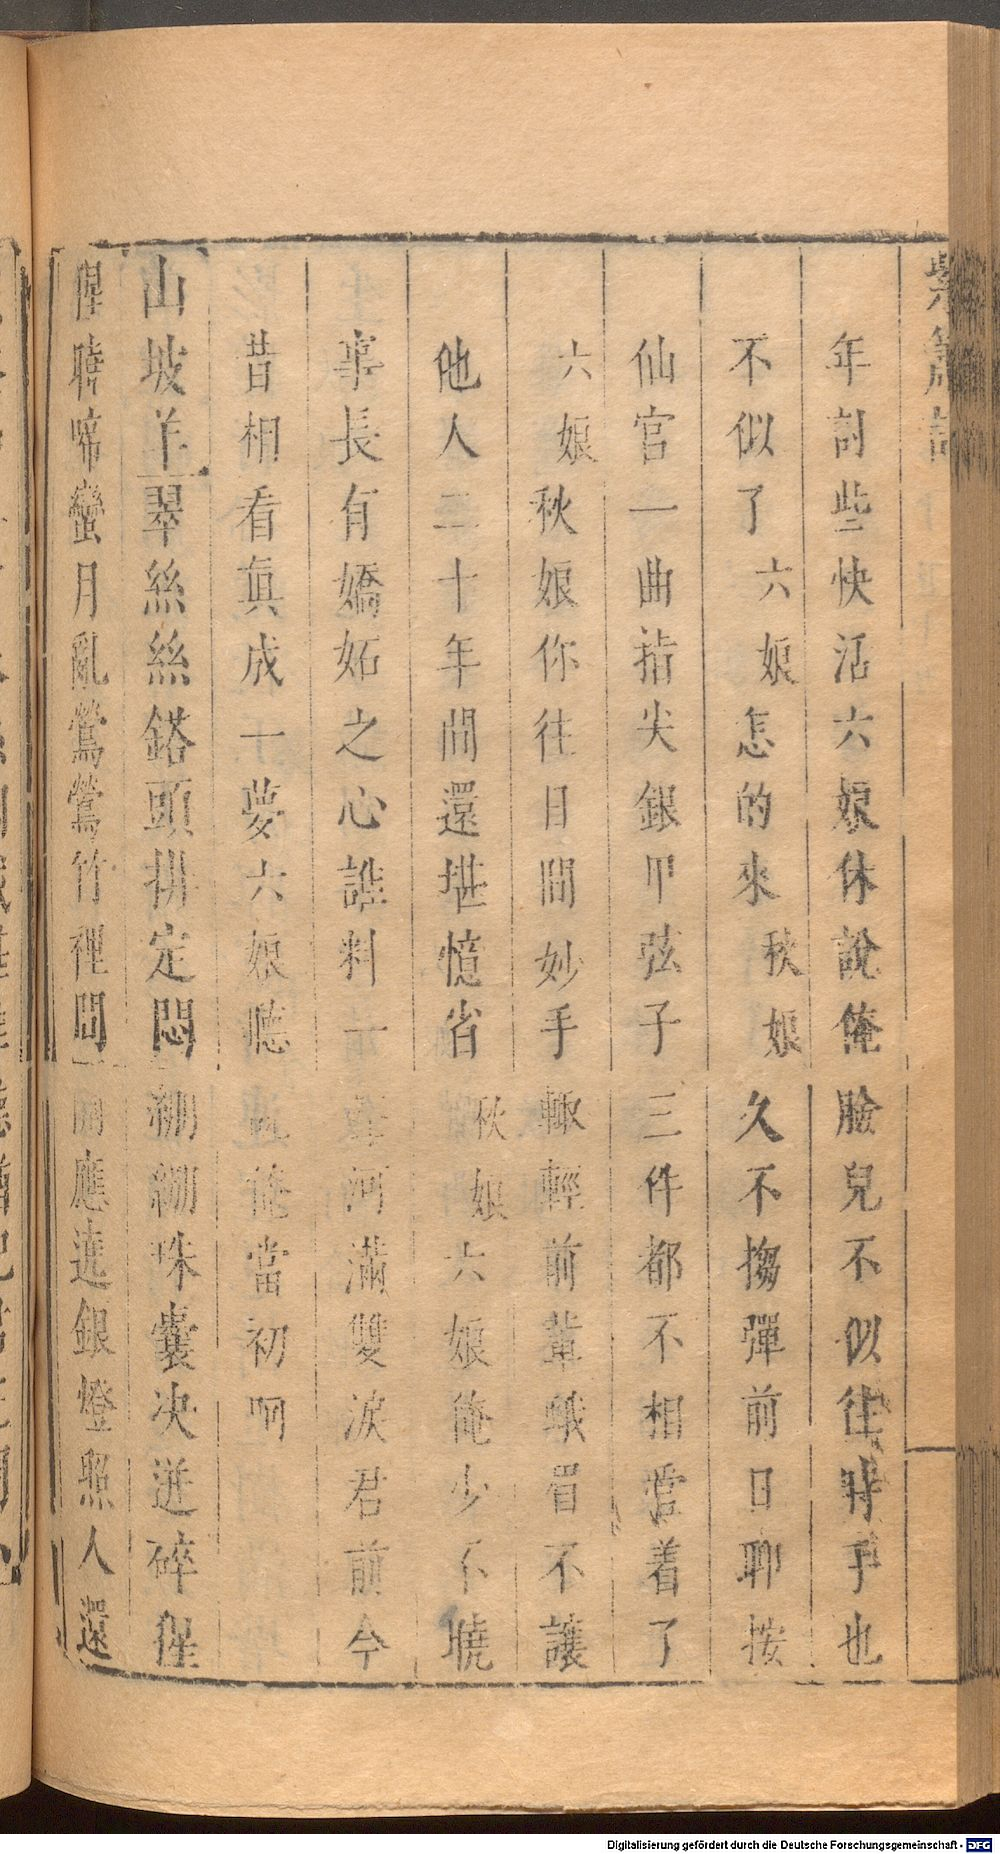 紫簫記
年討些快活六娘休說俺臉兒不似往時手也
不似了六娘怎的來秋娘久不搊彈前日聊按
仙官一曲指尖銀甲弦子三件都不相當着了
六娘秋娘你往日間妙手輙輕前輩蛾眉不讓
他人二十年間還堪憶省秋娘六娘俺少不曉
事長有嬌妬之心誰料一河滿雙淚君前今
昔相看真成一夢六娘聽俺當初呵
山坡羊翠絲絲鎝頭拼定悶綳綳珠囊决迸碎猩
猩啼蠻月亂鶯鶯竹裡間應遶銀燈照人還
Digitalisierung gefördert durch die Deutsche Forschungsgemeinschaft - DFG